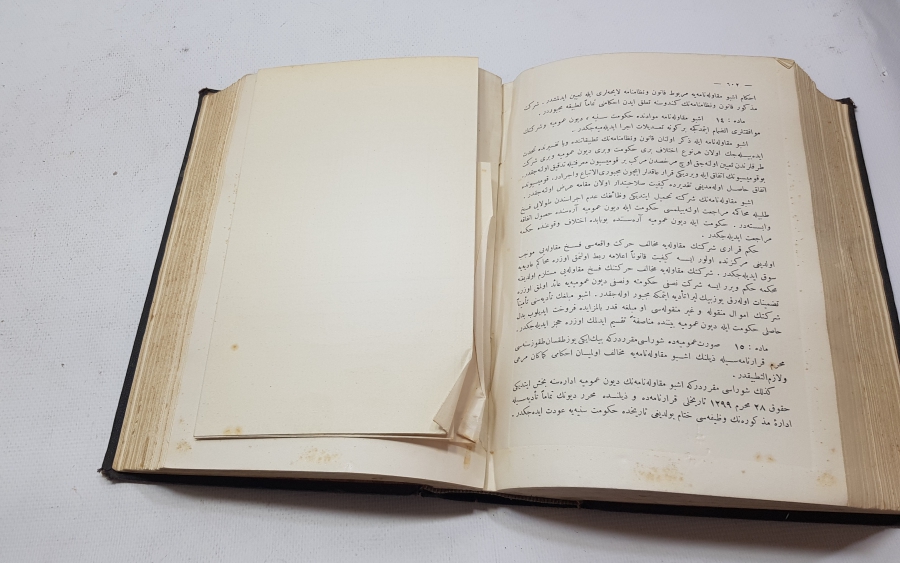 — ٦٠٢ —
احكام اشبو مقاوله‌نامه‌يه مربوط قانون ونظامنامه لايحه‌لرى ايله تعيين ايدلمشدر . شركت
مذكور قانون ونظامنامه‌نك كندوسنه تعلق ايدن احكامنى تماماً تطبيقه مجبوردر .
ماده : ١٤ اشبو مقاوله‌نامه موادنده حكومت سنيه و ديون عموميه وشركتك
موافقتلرى انضمام ايتمدكجه بركونه تعديلات اجرا ايديله‌ميه‌جكدر .
اشبو مقاوله‌نامه ايله ذكر اولنان قانون ونظامنامه‌نك تطبيقاتندن ويا تفسيرندن تحدث
ايده‌بيله‌جك اولان هرنوع اختلاف برى حكومت وبرى ديون عموميه وبرى شركت
طرفلرندن تعيين اوله‌جق اوچ مرخصدن مركب بر قوميسيون معرفتيله تدقيق اوله‌جقدر .
بوقوميسيونك اتفاق ايله ويرديكى قرار عاقدلر ايچون مجبورى‌الاتباع واجرادر . قوميسيونده
اتفاق حاصل اوله‌مديغى تقديرده كيفيت صلاحيتدار اولان مقامه عرض اوله‌جقدر .
اشبو مقاوله‌نامه‌نك شركته تحميل ايتديكى وظائفك عدم اجراسندن طولايى فسخ
طلبيله محاكمه مراجعت اولنه‌بيلمسى حكومت ايله ديون عموميه آره‌سنده حصول اتفاقه
وابسته‌در . حكومت ايله ديون عموميه آره‌سنده بوبابده اختلاف وقوعنده حكمه
مراجعت ايديله‌جكدر .
حكم قرارى شركتك مقاوله‌يه مخالف حركت واقعه‌سى فسخ مقاوله‌يى موجب
اولديغى مركزنده اولور ايسه كيفيت قانوناً اعلامه ربط اولنمق اوزره محاكم عاديه‌يه
سوق ايديله‌جكدر . شركتك مقاوله‌يه مخالف حركتنك فسخ مقاوله‌يى مستلزم اولديغنه
محكمه حكم ويرر ايسه شركت نصفى حكومته ونصفى ديون عموميه‌يه عائد اولمق اوزره
تضمينات اوله‌رق يوزبيك ليرا تأديه ايتمكه مجبور اوله‌جقدر . اشبو مبلغك تأديه‌سنى تأميناً
شركتك اموال منقوله و غير منقوله‌سى او مبلغه قدر بالمزايده فروخت ايديلوب بدل
حاصلى حكومت ايله ديون عموميه بيننده مناصفةً تقسيم ايدلمك اوزره حجز ايديله‌جكدر .
ماده : ١٥ صورت‌عموميه‌ده شوراسى‌مقرردركه بيك‌ايكى يوزطقسان‌طقوزسنه‌سى
محرم قرارنامه‌سيله ذيلنك اشبو مقاوله‌نامه‌يه مخالف اولميان احكامى كماكان مرعى
ولازم‌التطبيقدر .
كذلك شوراسى مقرردركه اشبو مقاوله‌نامه‌نك ديون عموميه اداره‌سنه بخش ايتديكى
حقوق ٢٨ محرم ١٢٩٩ تاريخلى قرارنامه‌ده و ذيلنده محرر ديونك تماماً تأديه‌سيله
ادارۀ مذكوره‌نك وظيفه‌سى ختام بولديغى تاريخده حكومت سنيه‌يه عودت ايده‌جكدر .